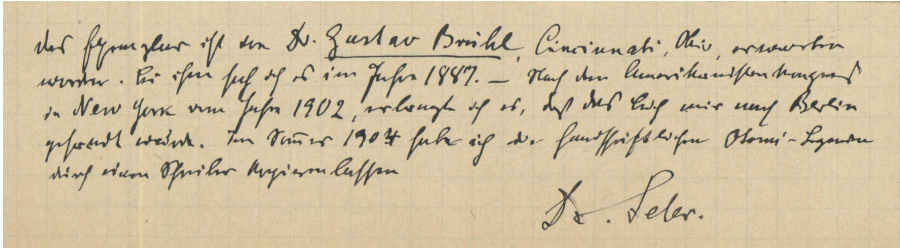 Das Exemplar ist von Dr. Gustav Brühl, Cincinnati, Ohio, erworben
worden. Bei ihm sah ich es im Jahre 1887. – Nach dem Amerikanistenkongress
in New York vom Jahre 1902, erlangte ich es, daß das Buch mir nach Berlin
gesandt wurde. Im Sommer 1904 habe ich die handschriftlichen Otomi-Legenden
durch einen Schreiber kopieren lassen
Dr. Seler.